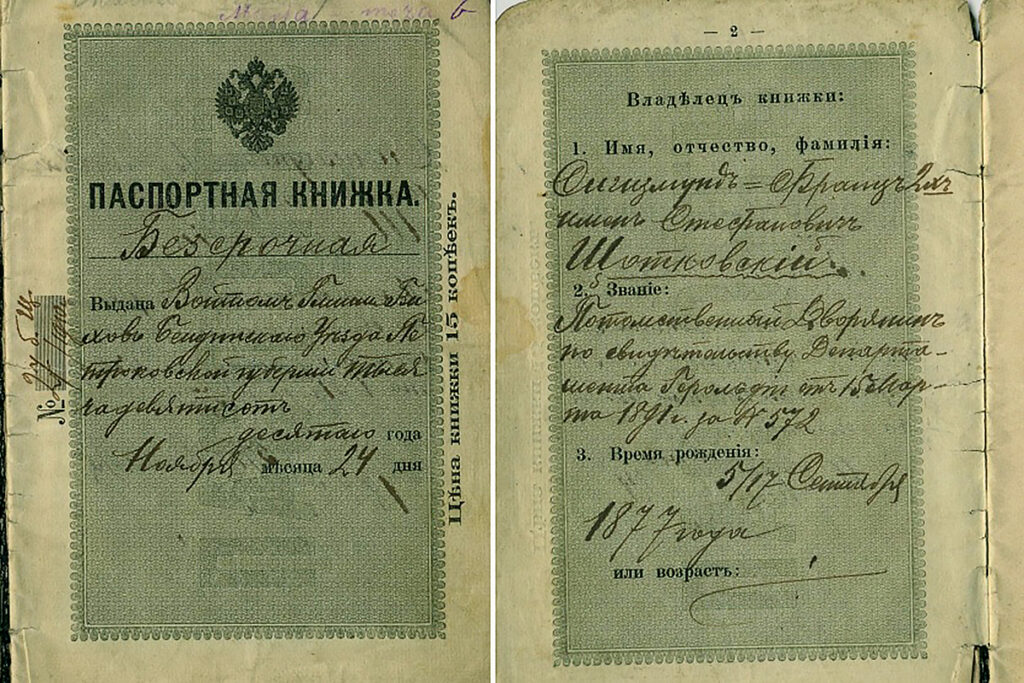 ПАСПОРТНАЯ КНИЖКА.
Безсрочная
Выдана Войтомъ Гмины
Бендинскаго Уѣзда Пе-
троковской губерніи тыся
ча девятисотъ
десятаго года
Ноября мѣсяца 24 дня
№
Цѣна книжки 15 копѣекъ.
— 2 —
Владѣлецъ книжки:
1. Имя, отчество, фамилія:
Сигизмундъ=Францъ 2хъ
именъ Стефановичъ
Шотковскій
2. Званіе:
Потомственный Дворянинъ
по свидѣтельству Департа-
мента Герольдіи отъ 15 Мар-
та 1891 г. за № 572
3. Время рожденія:
5/17 Сентября
1877 года
или возрастъ: